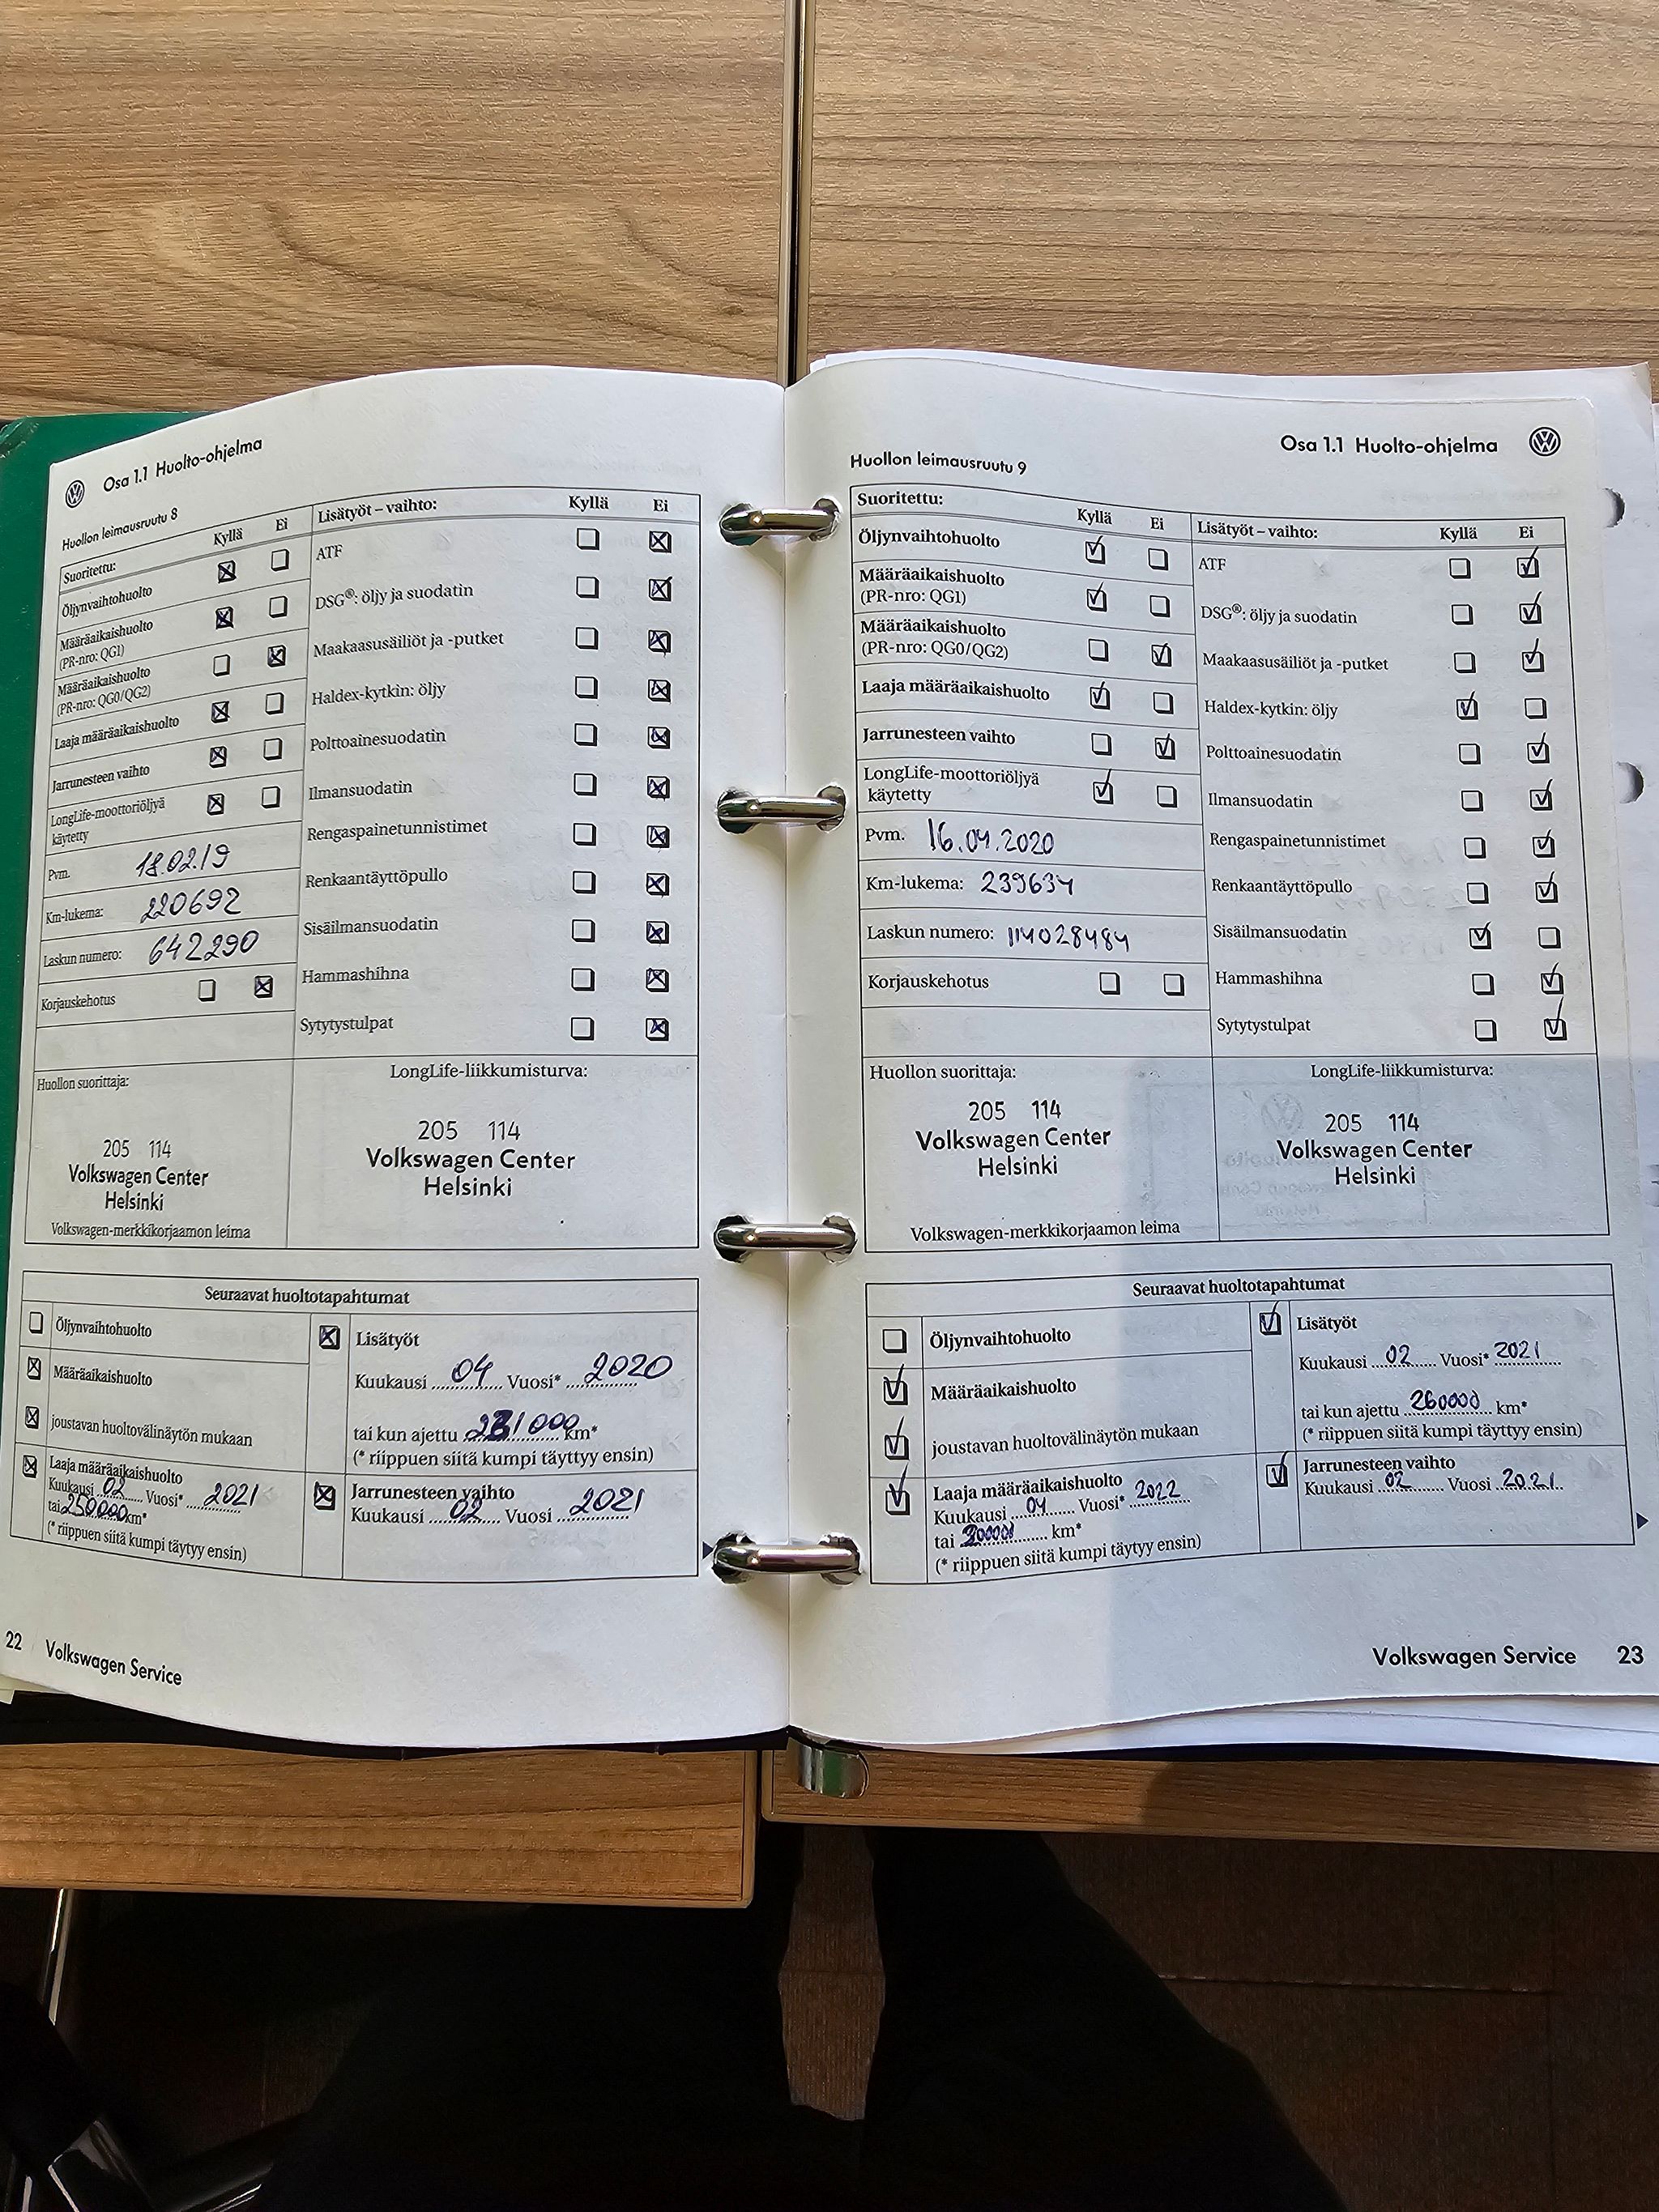 Osa 1.1 Huolto-ohjelma
Huollon leimausruutu 8
Suoritettu:
Kyllä Ei
Öljynvaihtohuolto
Määräaikaishuolto
(PR-nro: QG1)
Määräaikaishuolto
(PR-nro: QG0/QG2)
Laaja määräaikaishuolto
Jarrunesteen vaihto
LongLife-moottoriöljyä
käytetty
Pvm. 18.02.19
Km-lukema: 220692
Laskun numero: 642290
Korjauskehotus
Lisätyöt – vaihto: Kyllä Ei
ATF
DSG®: öljy ja suodatin
Maakaasusäiliöt ja -putket
Haldex-kytkin: öljy
Polttoainesuodatin
Ilmansuodatin
Rengaspainetunnistimet
Renkaantäyttöpullo
Sisäilmansuodatin
Hammashihna
Sytytystulpat
Huollon suorittaja:
205 114
Volkswagen Center
Helsinki
Volkswagen-merkkikorjaamon leima
LongLife-liikkumisturva:
205 114
Volkswagen Center
Helsinki
Seuraavat huoltotapahtumat
Öljynvaihtohuolto
Määräaikaishuolto
joustavan huoltovälinäytön mukaan
Laaja määräaikaishuolto
Kuukausi 02 Vuosi* 2021
tai 250000 km*
(* riippuen siitä kumpi täytyy ensin)
Lisätyöt
Kuukausi 04 Vuosi* 2020
tai kun ajettu 231000 km*
(* riippuen siitä kumpi täyttyy ensin)
Jarrunesteen vaihto
Kuukausi 02 Vuosi 2021
22 Volkswagen Service
Osa 1.1 Huolto-ohjelma
Huollon leimausruutu 9
Suoritettu:
Kyllä Ei
Öljynvaihtohuolto
Määräaikaishuolto
(PR-nro: QG1)
Määräaikaishuolto
(PR-nro: QG0/QG2)
Laaja määräaikaishuolto
Jarrunesteen vaihto
LongLife-moottoriöljyä
käytetty
Pvm. 16.04.2020
Km-lukema: 239634
Laskun numero: 114028484
Korjauskehotus
Lisätyöt – vaihto: Kyllä Ei
ATF
DSG®: öljy ja suodatin
Maakaasusäiliöt ja -putket
Haldex-kytkin: öljy
Polttoainesuodatin
Ilmansuodatin
Rengaspainetunnistimet
Renkaantäyttöpullo
Sisäilmansuodatin
Hammashihna
Sytytystulpat
Huollon suorittaja:
205 114
Volkswagen Center
Helsinki
Volkswagen-merkkikorjaamon leima
LongLife-liikkumisturva:
205 114
Volkswagen Center
Helsinki
Seuraavat huoltotapahtumat
Öljynvaihtohuolto
Määräaikaishuolto
joustavan huoltovälinäytön mukaan
Laaja määräaikaishuolto
Kuukausi 04 Vuosi* 2022
tai km*
(* riippuen siitä kumpi täytyy ensin)
Lisätyöt
Kuukausi 02 Vuosi* 2021
tai kun ajettu 260000 km*
(* riippuen siitä kumpi täyttyy ensin)
Jarrunesteen vaihto
Kuukausi 02 Vuosi 2021
Volkswagen Service 23